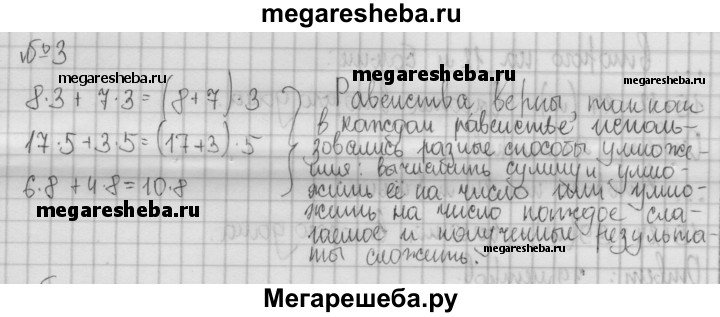 megaresheba.ru
№3
megaresheba.ru
megaresheba.ru
megaresheba.ru
8·3 + 7·3 = (8+7)·3
17·5 + 3·5 = (17+3)·5
6·8 + 4·8 = 10·8
megaresheba.ru
Равенства верны, так как
в каждом равенстве исполь-
зовались разные способы умноже-
ния: вычислить сумму и умно-
жить её на число или умно-
жить на число каждое сла-
гаемое и полученные результа-
ты сложить.
megaresheba.ru
Мегарешеба.ру